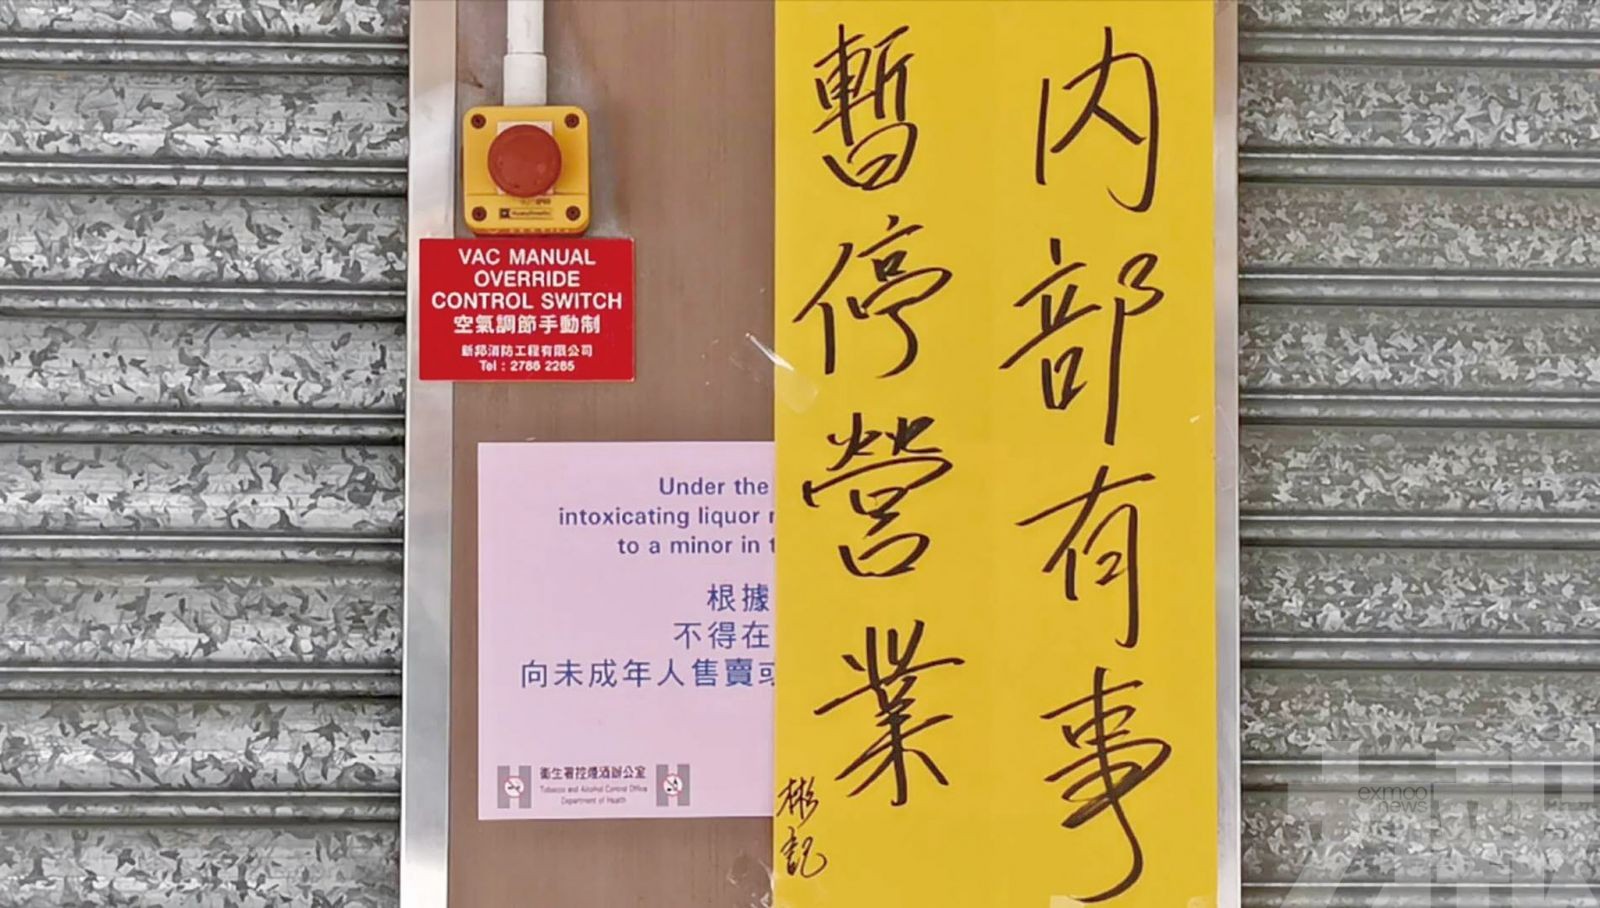 內部有事
暫停營業
彬記
VAC MANUAL
OVERRIDE
CONTROL SWITCH
空氣調節手動制
新邦消防工程有限公司
Tel : 2786 2265
Under the
intoxicating liquor
to a minor in
根據
不得在
向未成年人售賣或
衞生署控煙酒辦公室
Tobacco and Alcohol Control Office
Department of Health
exmoo
news